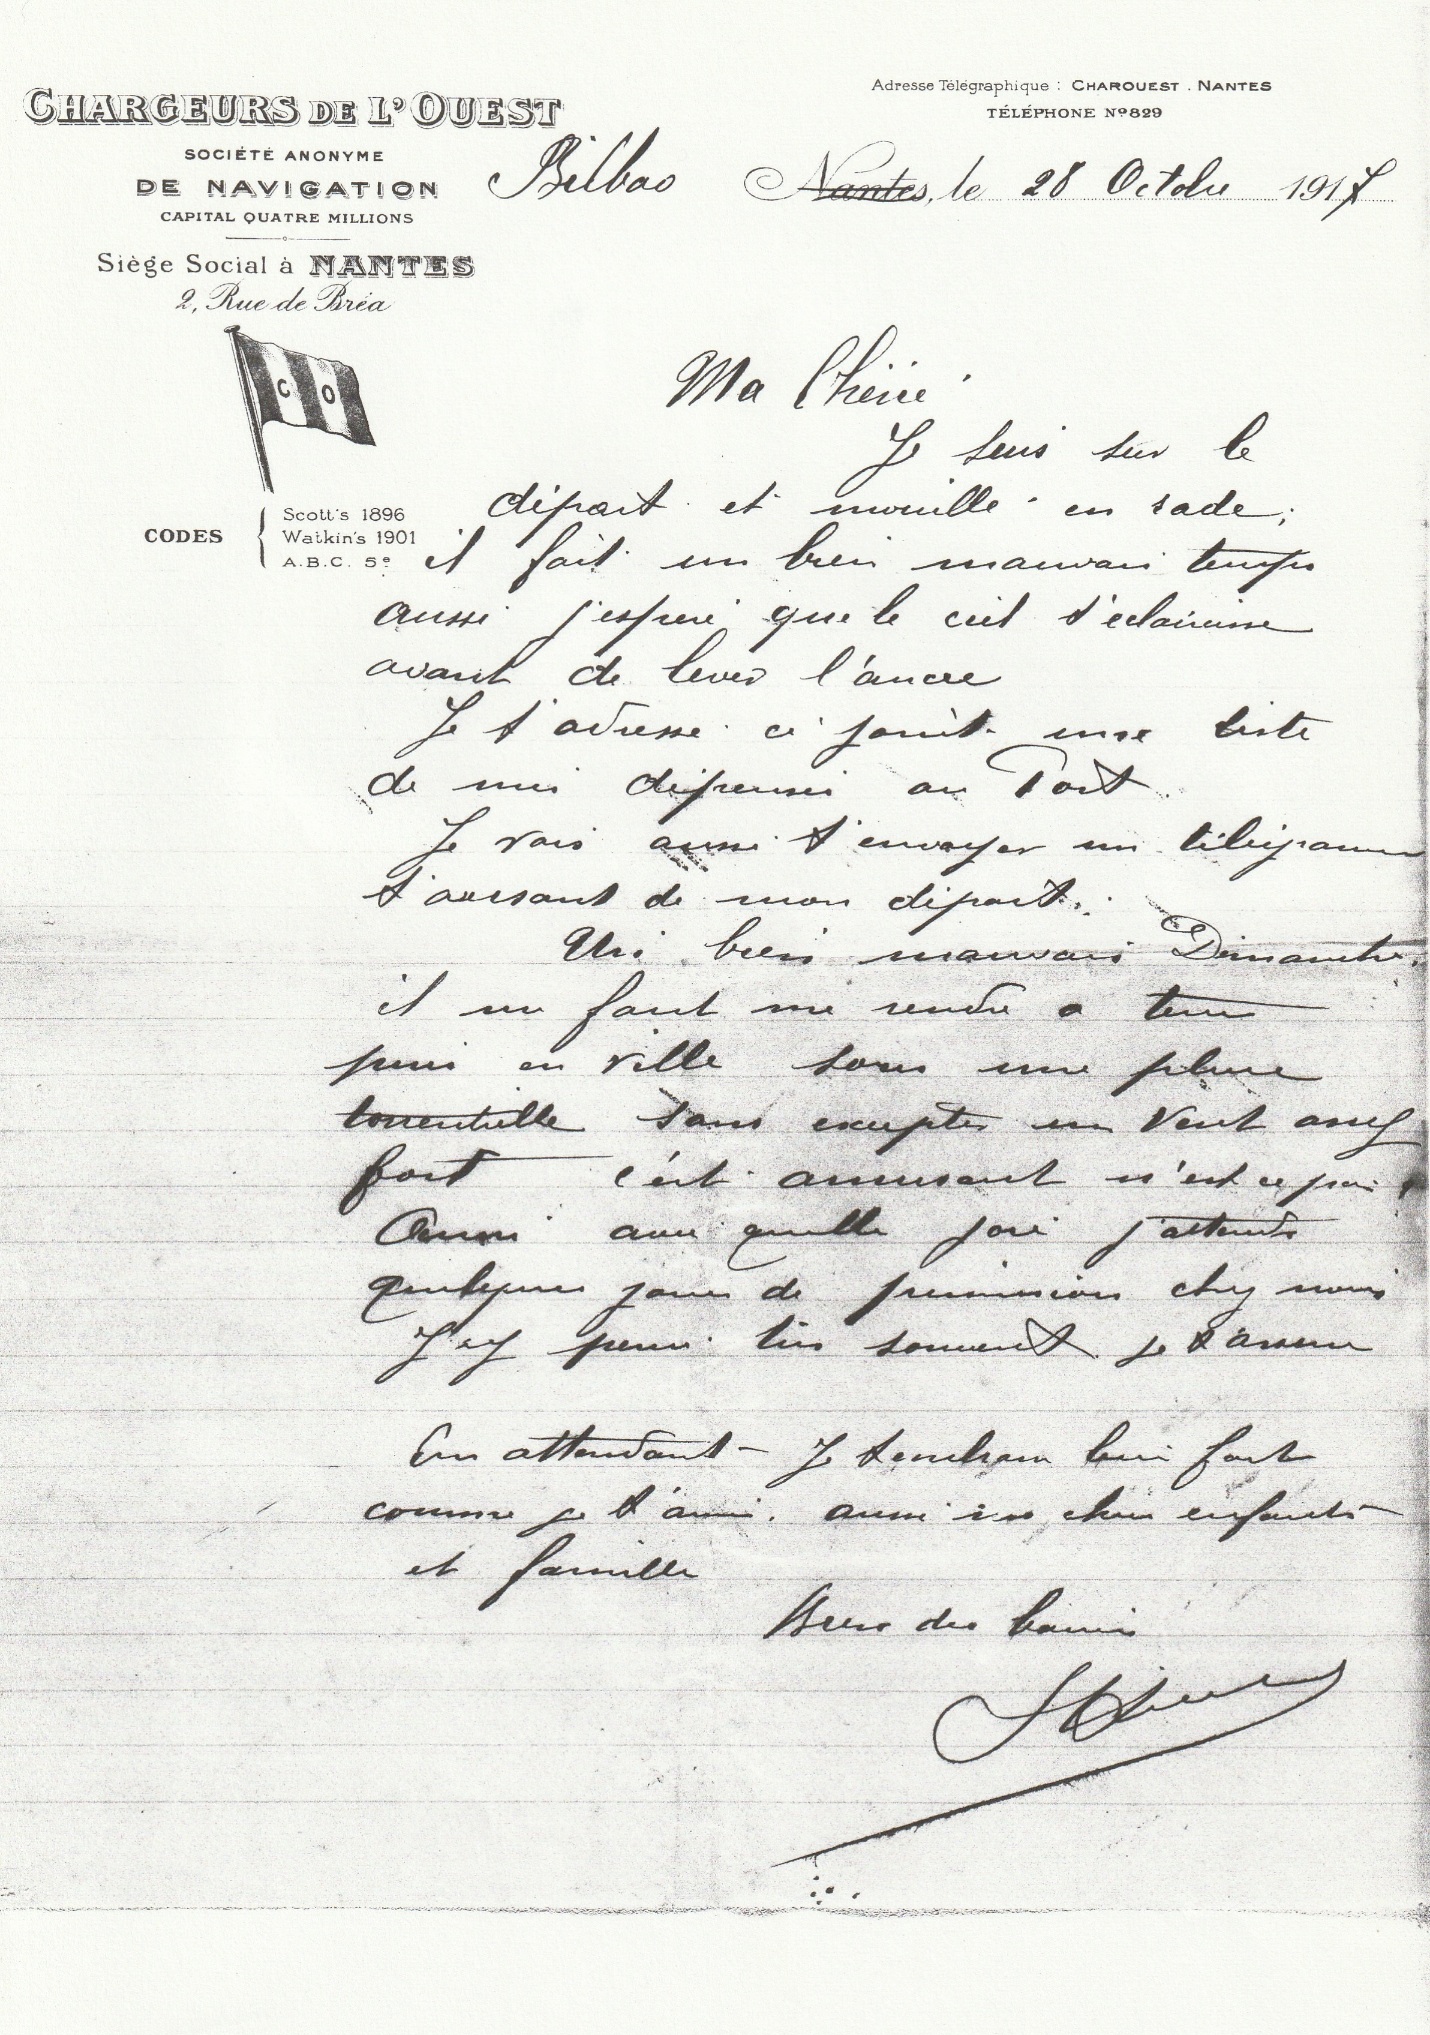 CHARGEURS DE L'OUEST
SOCIÉTÉ ANONYME
DE NAVIGATION
CAPITAL QUATRE MILLIONS
Siège Social à NANTES
2, Rue de Bréa
C O
CODES
Scott's 1896
Watkin's 1901
A.B.C. 5e
Adresse Télégraphique : CHAROUEST . NANTES
TÉLÉPHONE No 829
Bilbao Nantes, le 28 Octobre 1917
Ma Chérie
Je suis sur le
départ et mouillé en rade ;
il fait un bien mauvais temps
aussi j'espere que le ciel s'eclaircisse
avant de lever l'ancre
Je t'adresse ci joint une liste
de mes dépenses au Port.
Je vais aussi t'envoyer un télégramme
t'avisant de mon départ.
Un bien mauvais Dimanche.
il me faut me rendre a terre
puis en ville sous une pluie
torrentielle sans excepter un vent assez
fort c'est amusant n'est ce pas
Aussi avec quelle joie j'attends
quelques jours de permission chez nous
J'y pense très souvent je t'assure
En attendant Je t'embrasse bien fort
comme je t'aime. aussi nos chers enfants
et famille
Bien des baisers